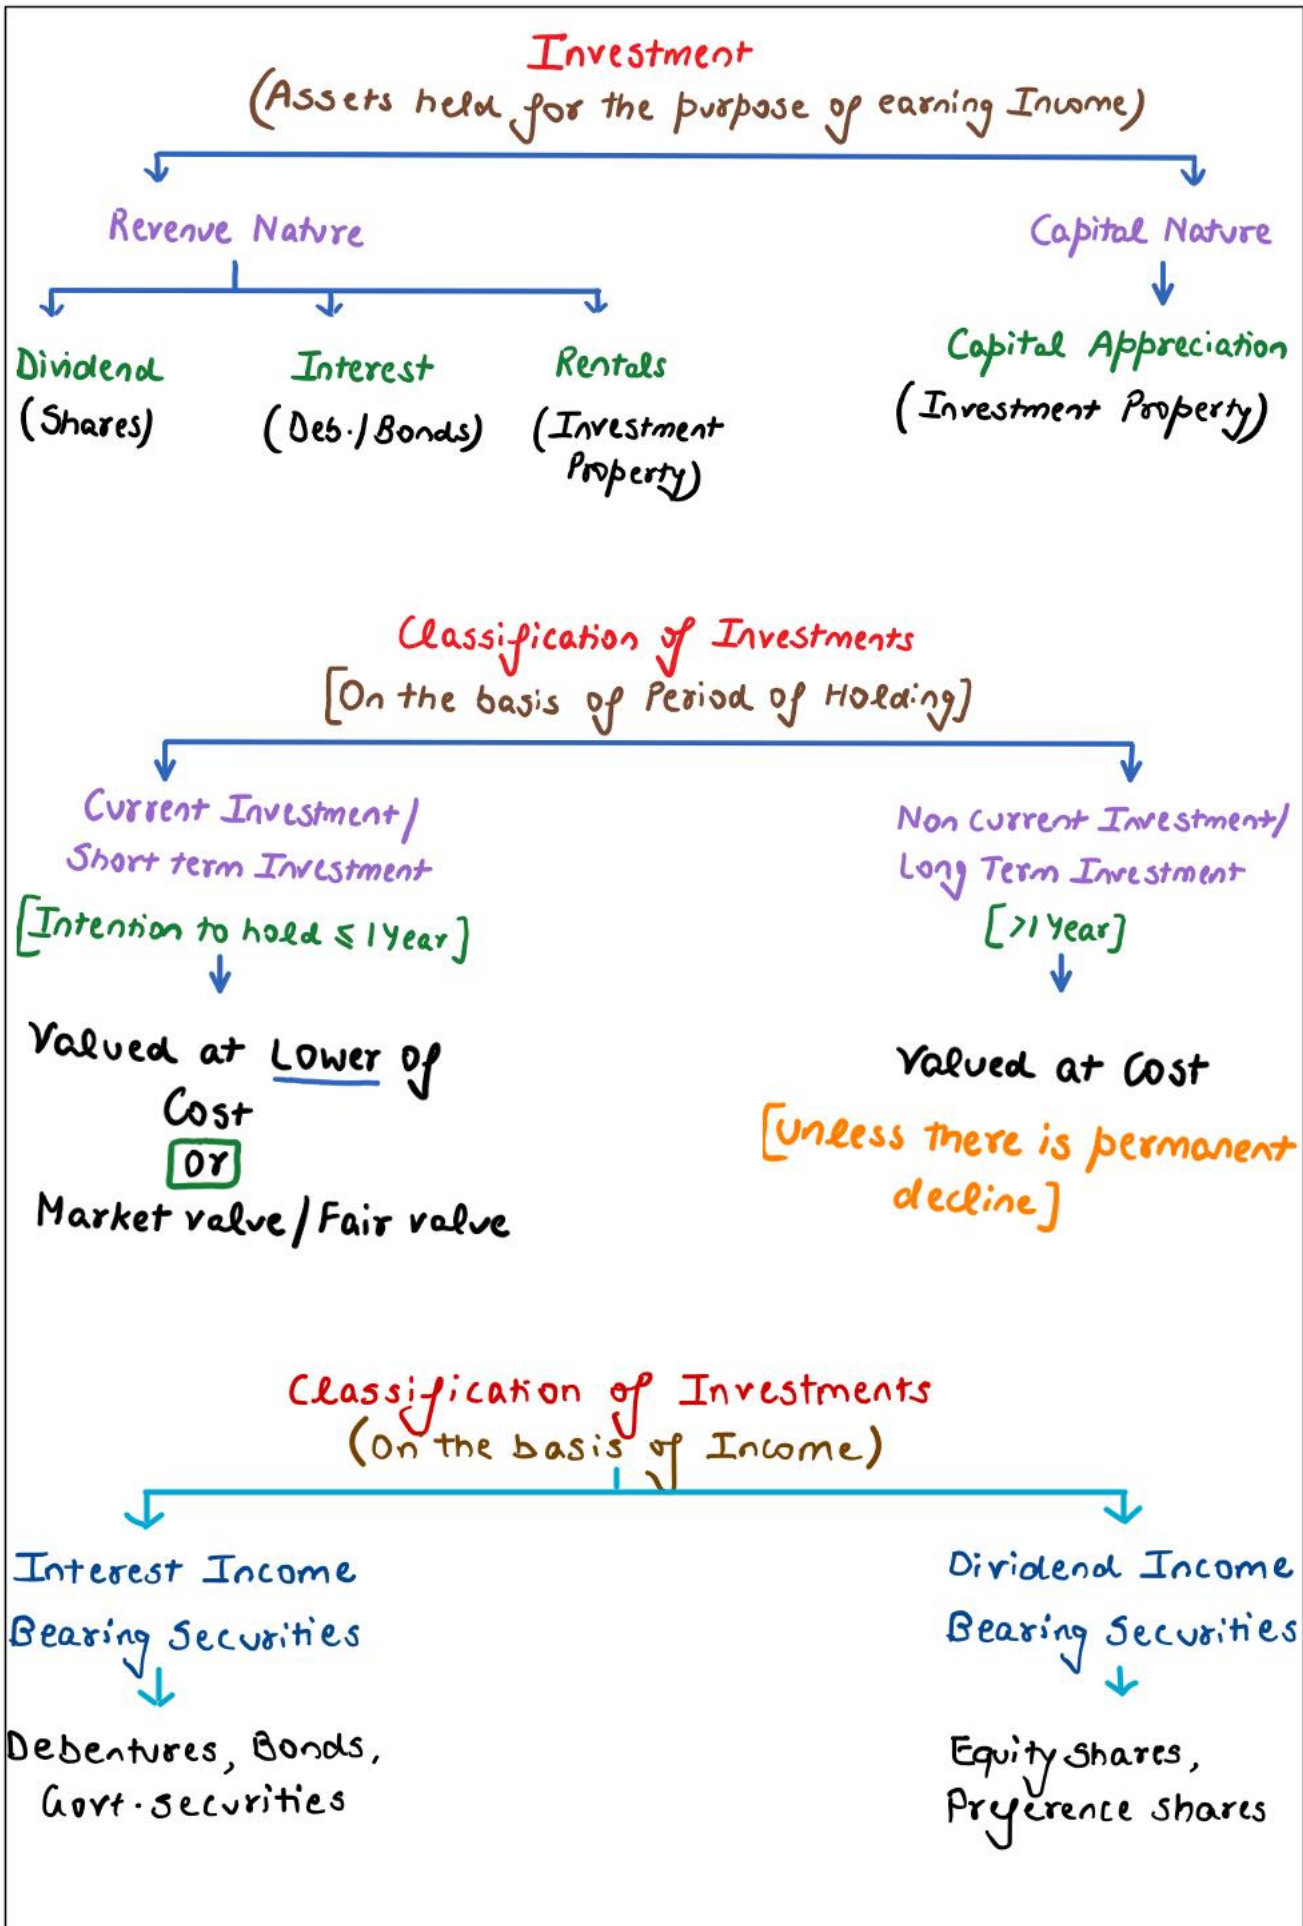 Investment
(Assets held for the purpose of earning Income)
Revenue Nature
Capital Nature
Dividend
(Shares)
Interest
(Deb./Bonds)
Rentals
(Investment
Property)
Capital Appreciation
(Investment Property)
Classification of Investments
[On the basis of Period of Holding]
Current Investment/
Short term Investment
[Intention to hold ≤ 1 Year]
Valued at Lower of
Cost
or
Market value/Fair value
Non Current Investment/
Long Term Investment
[>1 Year]
Valued at Cost
[unless there is permanent
decline]
Classification of Investments
(On the basis of Income)
Interest Income
Bearing Securities
Debentures, Bonds,
Govt. securities
Dividend Income
Bearing Securities
Equity shares,
Preference shares